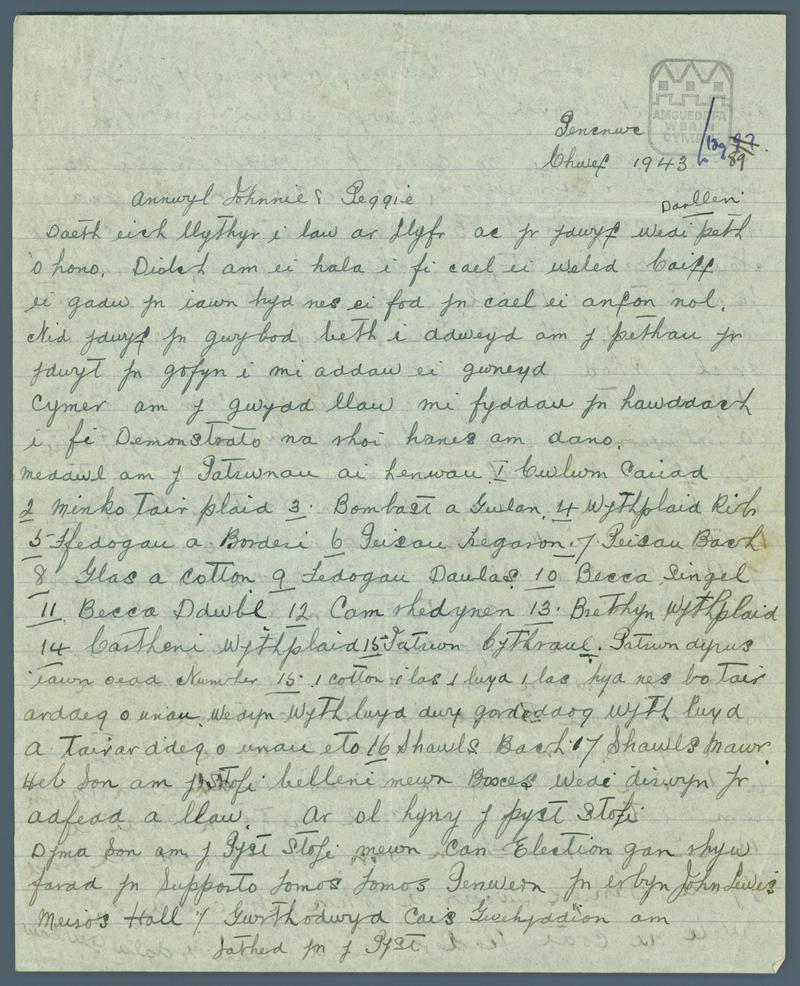 AMGUEDDFA
WERIN
CYMRU
Pencnwc
Chwef 1943
89
Annwyl Johnnie & Peggie
Darllen
Daeth eich llythyr i law ar llyfr ac yr ydwyf wedi peth
o hono. Diolch am ei hala i fi cael ei weled Caiff
ei gadw yn iawn hyd nes ei fod yn cael ei anfon nol.
Nid ydwyf yn gwybod beth i ddweyd am y pethau yr
ydwyt yn gofyn i mi addaw ei gwneyd
Cymer am y gwydd llaw mi fyddau yn hawddach
i fi Demonstrato na rhoi hanes am dano.
meddwl am y Patrwnau ai henwau 1 Cwlwm Cariad
2 Minko Tair plaid 3. Bombast a Gwlan. 4 Wythplaid Rib
5 Ffedogau a Borderi 6 Peisau Tregaron. 7 Peisau Bach
8 Glas a cotton 9 Fedogau Daulas 10 Becca Singel
11 Becca Ddwbl 12 Cam rhedynen 13. Brethyn Wythplaid
14 Cartheni Wythplaid 15 Patrwn Cythraul. Patrwn dyrus
iawn oedd Number 15. 1 cotton 1 las 1 lwyd 1 las hyd nes bo tair
arddeg o unau. Wedyn Wyth lwyd dwy gordeddog wyth lwyd
a tairarddeg o unau eto 16 Shawls Bach 17 Shawls Mawr.
Heb Son am y Stofi belleni mewn Boxes wedi dirwyn yr
adfedd a llaw. Ar ol hyny y pyst Stofi
Dyma Son am y Pyst Stofi mewn Can Election gan rhyw
farad yn Supporto Tomos Tomos Penwern yn erbyn John Lewis
Meiros Hall y Gwrthodwyd Cais Gwehyddion am
Jathed yn y Pyst